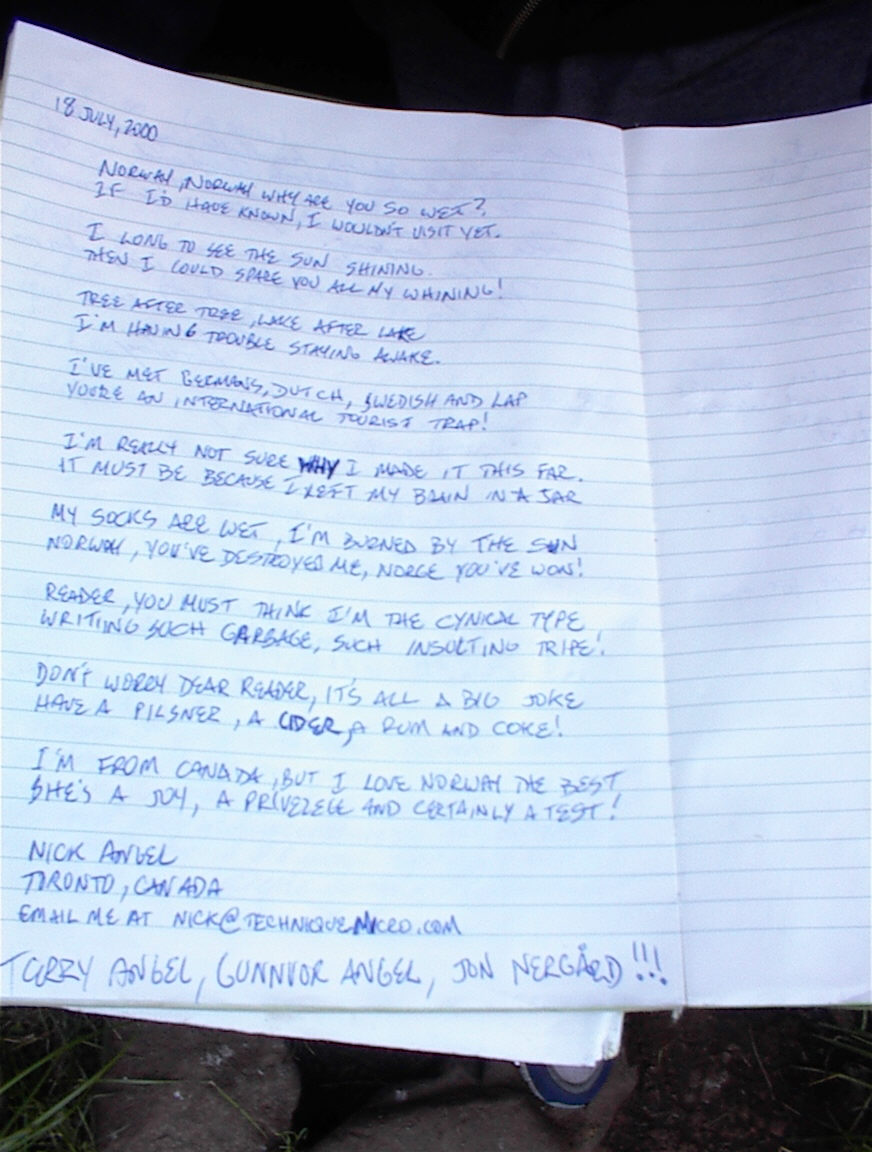 18 JULY, 2000
NORWAY, NORWAY WHY ARE YOU SO WET?
IF I'D HAVE KNOWN, I WOULDN'T VISIT YET.
I LONG TO SEE THE SUN SHINING.
THEN I COULD SPARE YOU ALL MY WHINING!
TREE AFTER TREE, LAKE AFTER LAKE
I'M HAVING TROUBLE STAYING AWAKE.
I'VE MET GERMANS, DUTCH, SWEDISH AND LAP
YOU'RE AN INTERNATIONAL TOURIST TRAP!
I'M REALLY NOT SURE WHY I MADE IT THIS FAR.
IT MUST BE BECAUSE I LEFT MY BRAIN IN A JAR
MY SOCKS ARE WET, I'M BURNED BY THE SUN
NORWAY, YOU'VE DESTROYED ME, NORGE YOU'VE WON!
READER, YOU MUST THINK I'M THE CYNICAL TYPE
WRITING SUCH GARBAGE, SUCH INSULTING TRIPE!
DON'T WORRY DEAR READER, IT'S ALL A BIG JOKE
HAVE A PILSNER, A CIDER, A RUM AND COKE!
I'M FROM CANADA, BUT I LOVE NORWAY THE BEST
SHE'S A JOY, A PRIVELEGE AND CERTAINLY A TEST!
NICK ANGEL
TORONTO, CANADA
EMAIL ME AT NICK@TECHNIQUEMICRO.COM
TERRY ANGEL, GUNNVOR ANGEL, JON NERGÅRD!!!